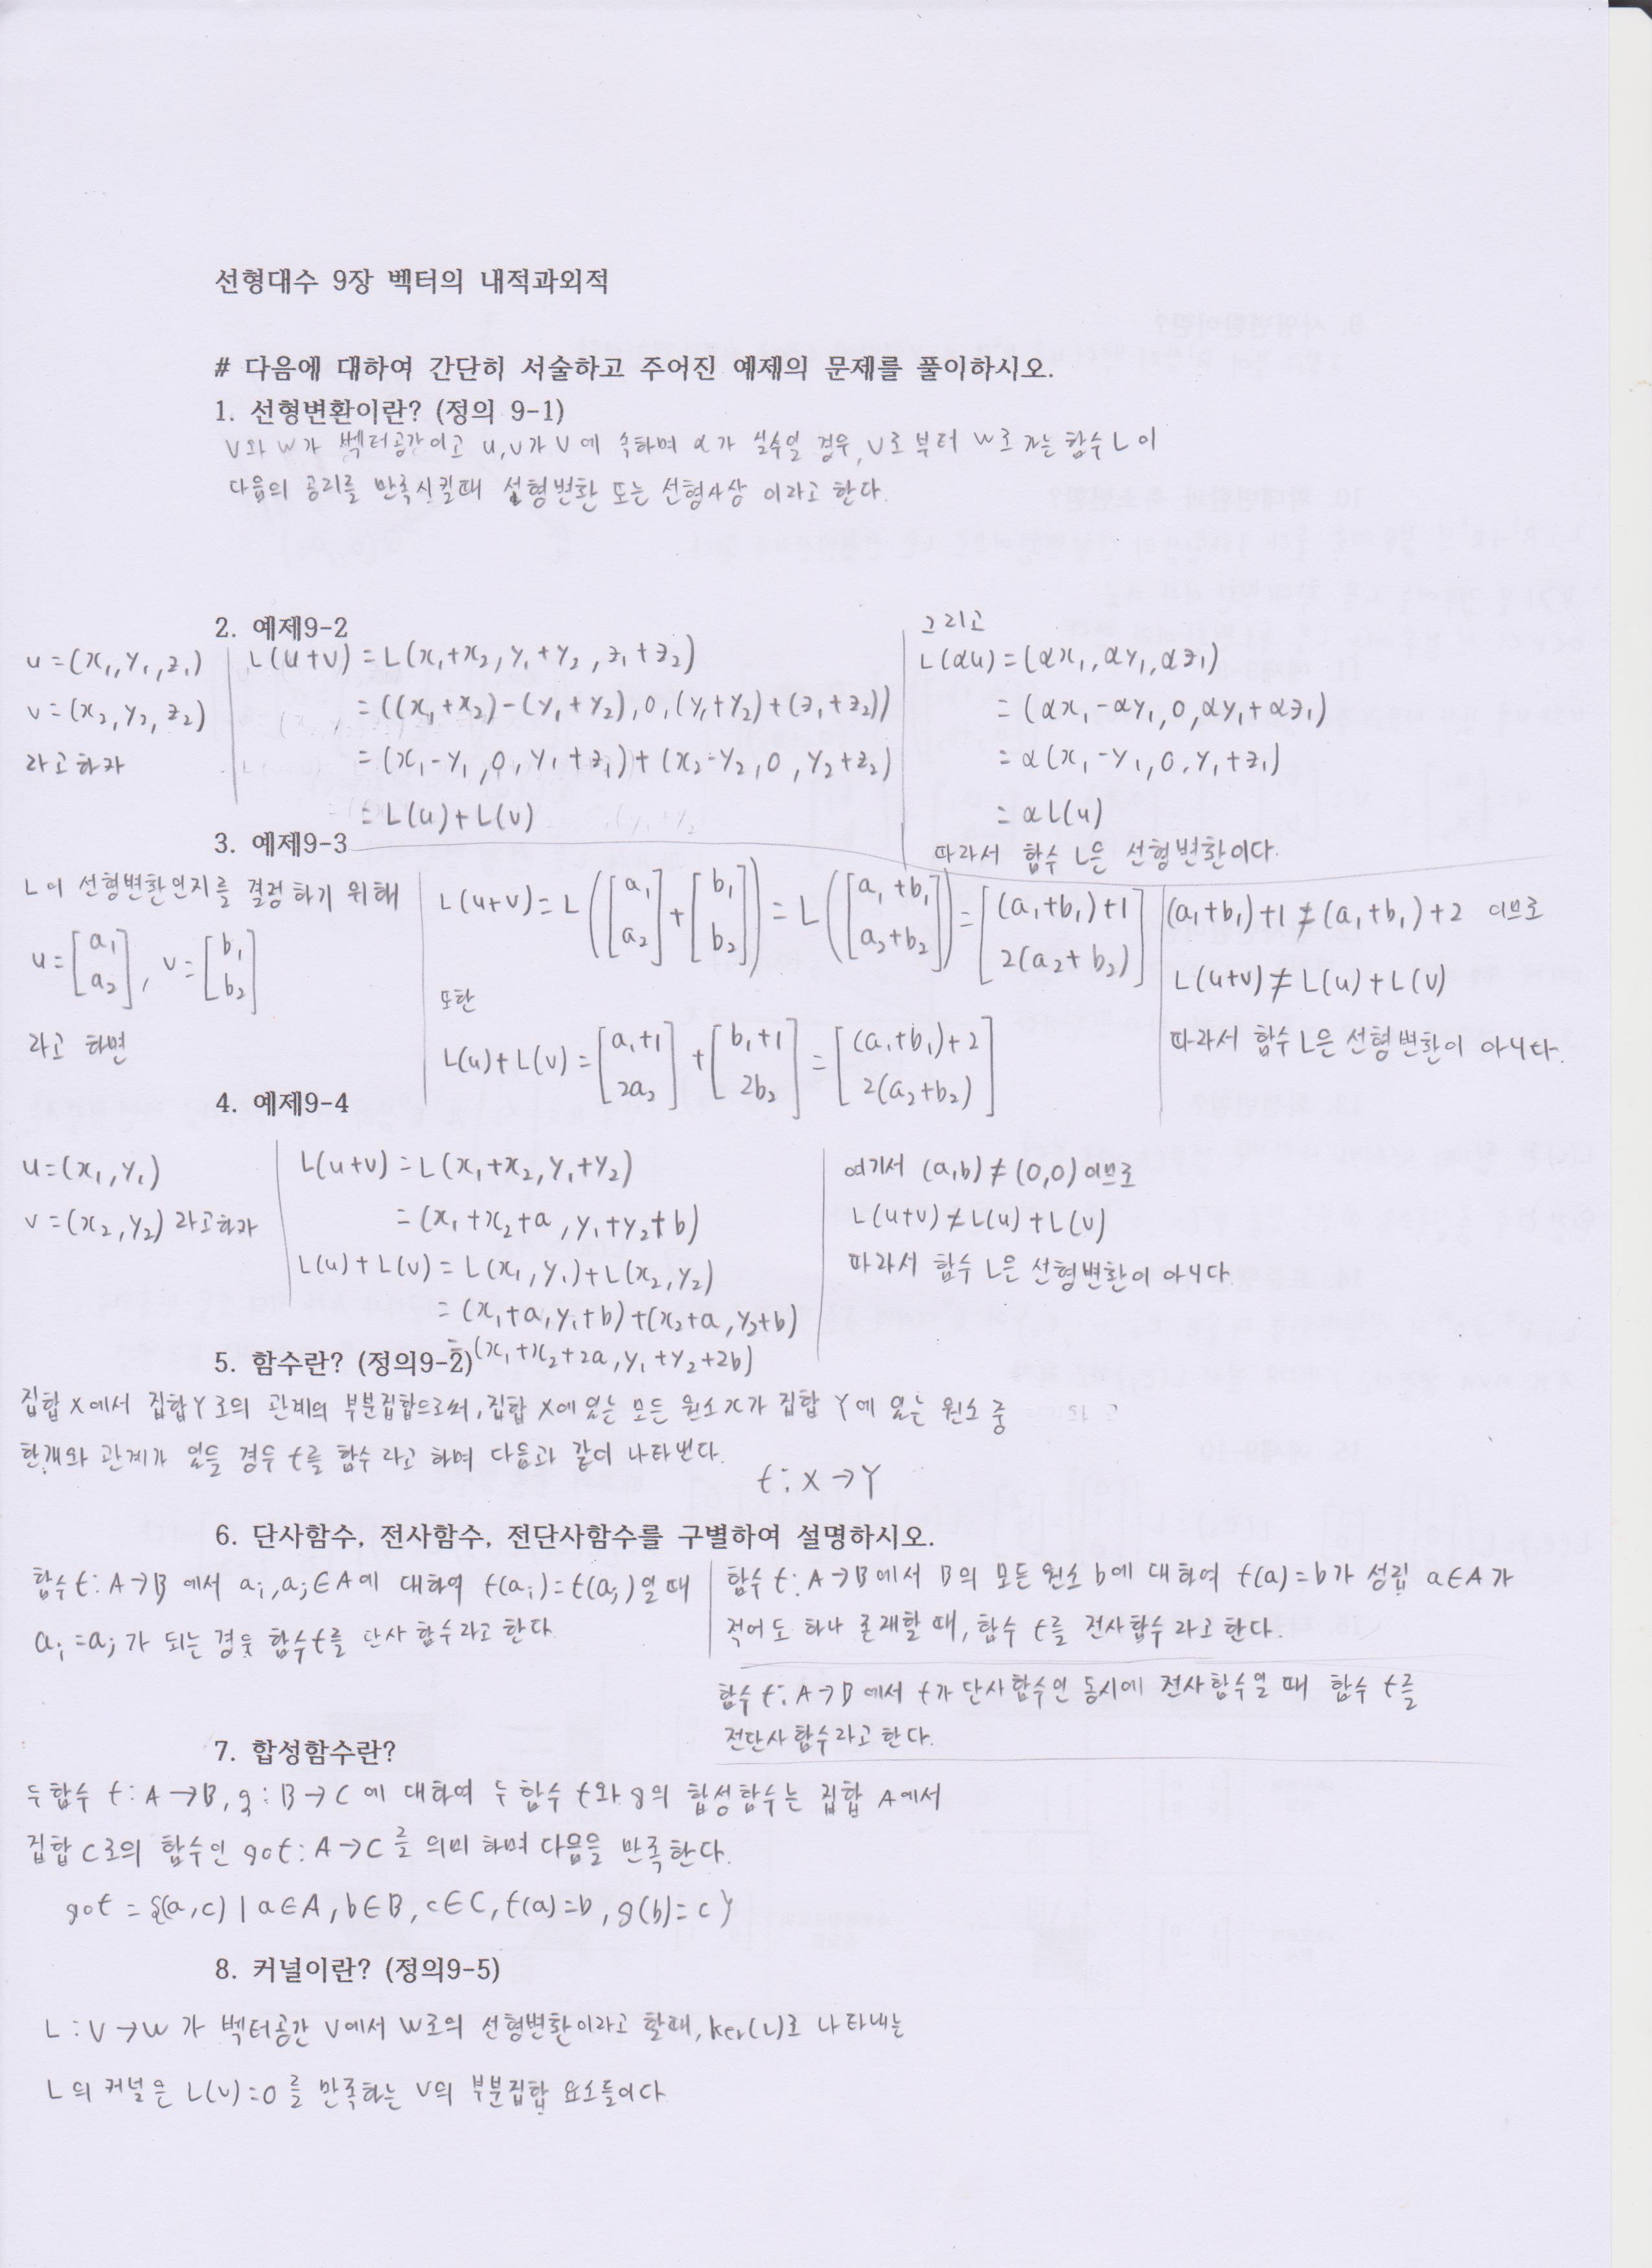 선형대수 9장 벡터의 내적과외적
# 다음에 대하여 간단히 서술하고 주어진 예제의 문제를 풀이하시오.
1. 선형변환이란? (정의 9-1)
V와 W가 벡터공간이고 u,v가 V에 속하며 α가 실수일 경우, V로부터 W로 가는 함수 L이
다음의 공리를 만족시킬때 선형변환 또는 선형사상 이라고 한다.
2. 예제9-2
u=(x₁,y₁,z₁)
v=(x₂,y₂,z₂)
라고하자
L(u+v)=L(x₁+x₂,y₁+y₂,z₁+z₂)
=((x₁+x₂)-(y₁+y₂),0,(y₁+y₂)+(z₁+z₂))
=(x₁-y₁,0,y₁+z₁)+(x₂-y₂,0,y₂+z₂)
=L(u)+L(v)
그리고
L(αu)=(αx₁,αy₁,αz₁)
=(αx₁-αy₁,0,αy₁+αz₁)
=α(x₁-y₁,0,y₁+z₁)
=αL(u)
따라서 함수 L은 선형변환이다.
3. 예제9-3
L이 선형변환인지를 결정하기 위해
u=[a₁ a₂], v=[b₁ b₂]
라고 하면
L(u+v)=L([a₁ a₂]+[b₁ b₂])=L([a₁+b₁ a₂+b₂])=[(a₁+b₁)+1 2(a₂+b₂)]
또한
L(u)+L(v)=[a₁+1 2a₂]+[b₁+1 2b₂]=[(a₁+b₁)+2 2(a₂+b₂)]
(a₁+b₁)+1≠(a₁+b₁)+2 이므로
L(u+v)≠L(u)+L(v)
따라서 함수 L은 선형변환이 아니다.
4. 예제9-4
u=(x₁,y₁)
v=(x₂,y₂) 라고하자
L(u+v)=L(x₁+x₂,y₁+y₂)
=(x₁+x₂+a,y₁+y₂+b)
L(u)+L(v)=L(x₁,y₁)+L(x₂,y₂)
=(x₁+a,y₁+b)+(x₂+a,y₂+b)
=(x₁+x₂+2a,y₁+y₂+2b)
여기서 (a,b)≠(0,0)이므로
L(u+v)≠L(u)+L(v)
따라서 함수 L은 선형변환이 아니다.
5. 함수란? (정의9-2)
집합 X에서 집합Y로의 관계의 부분집합으로써, 집합 X에 있는 모든 원소 x가 집합 Y에 있는 원소 중
한개와 관계가 있을 경우 f를 함수 라고 하며 다음과 같이 나타낸다.
f: X→Y
6. 단사함수, 전사함수, 전단사함수를 구별하여 설명하시오.
함수 f: A→B 에서 aᵢ,aⱼ∈A에 대하여 f(aᵢ)=f(aⱼ)일 때
aᵢ=aⱼ가 되는 경웃 함수f를 단사 함수라고 한다.
함수 f: A→B에서 B의 모든 원소 b에 대하여 f(a)=b가 성립 a∈A가
적어도 하나 존재할 때, 함수 f를 전사함수 라고 한다.
함수 f: A→B 에서 f가 단사함수인 동시에 전사함수일 때 함수 f를
전단사함수라고 한다.
7. 합성함수란?
두함수 f: A→B, g: B→C 에 대하여 두 함수 f와 g의 합성함수는 집합 A에서
집합 C로의 함수인 g∘f: A→C를 의미 하며 다음을 만족한다.
g∘f={(a,c) | a∈A, b∈B, c∈C, f(a)=b, g(b)=c}
8. 커널이란? (정의9-5)
L: V→W 가 벡터공간 V에서 W로의 선형변환이라고 할때, ker(L)로 나타내는
L의 커널은 L(v)=0 를 만족하는 V의 부분집합 요소들이다